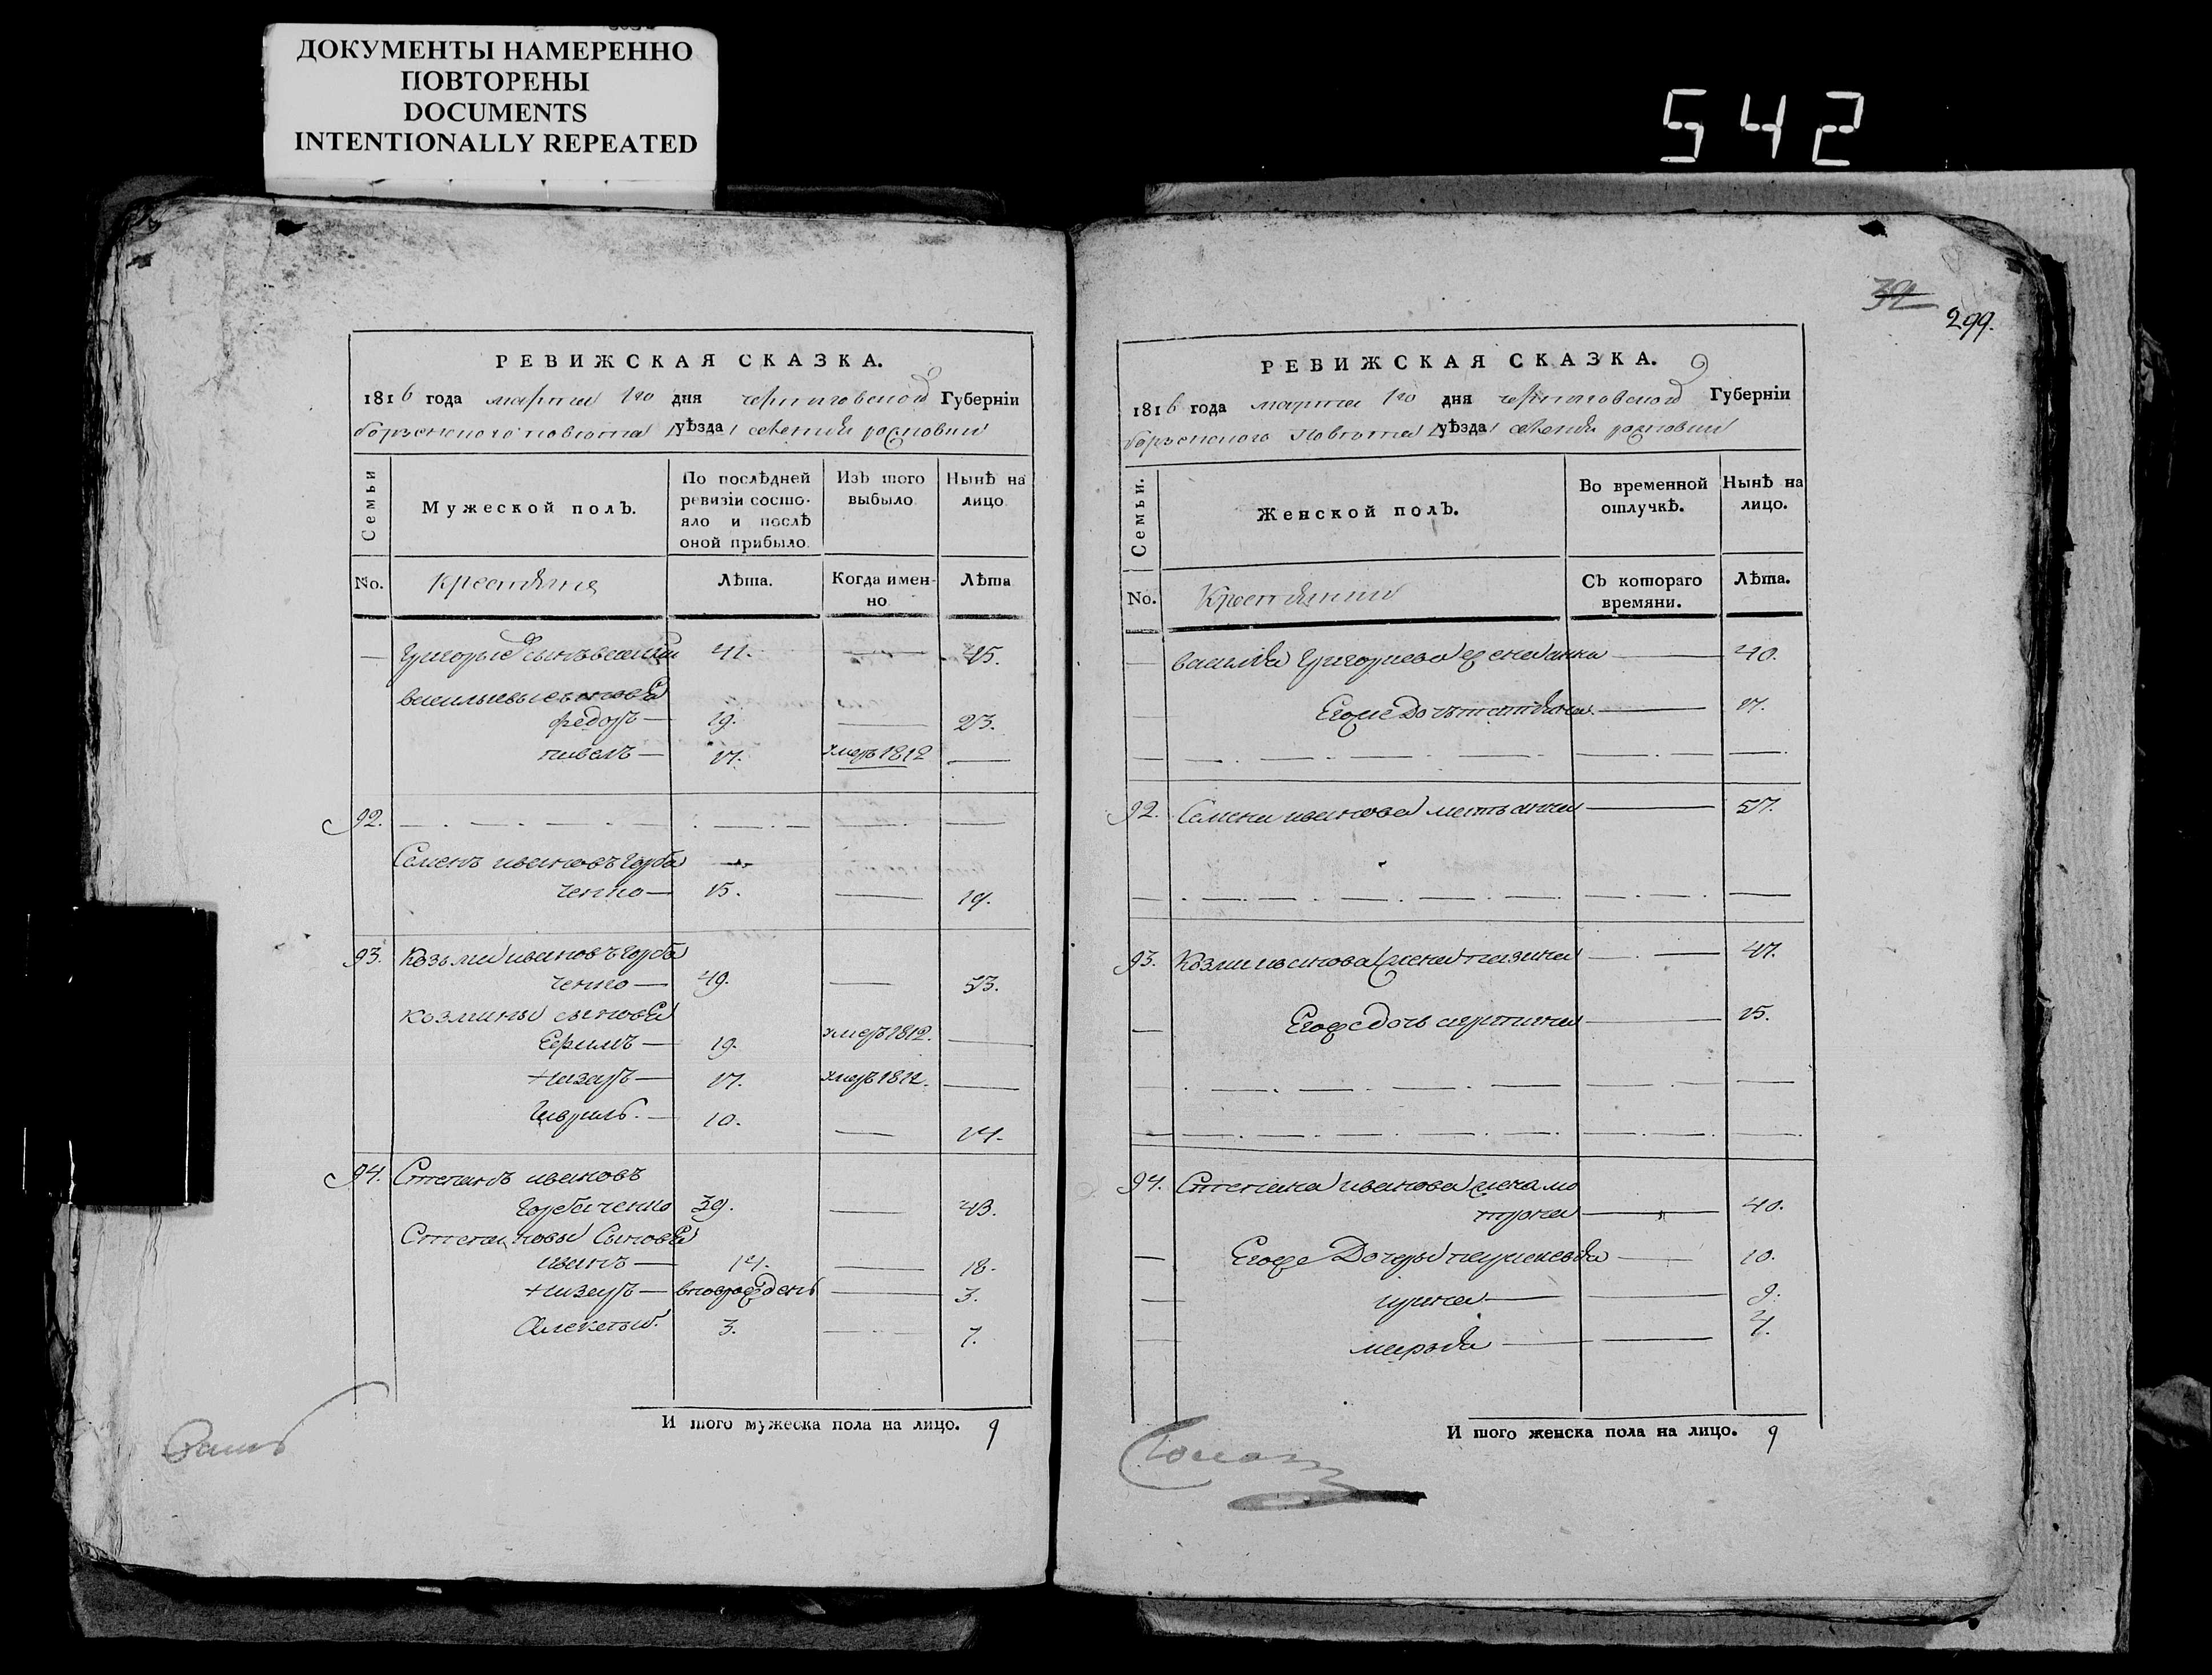 ДОКУМЕНТЫ НАМЕРЕННО
ПОВТОРЕНЫ
DOCUMENTS
INTENTIONALLY REPEATED
542
РЕВИЖСКАЯ СКАЗКА.
1816 года марта 1го дня черниговской Губернїи
борзенского повѣта /уѣзда/ селения
Семьи
Мужеской полъ.
По послѣдней ревизїи состояло и послѣ оной прибыло.
Изъ того выбыло
Нынѣ на лицо
No.
Крестьяня
Лѣта.
Когда именно
Лѣта
— Григорыя сынъ василий 41. — 45.
васильевы сыновья
федоръ — 19. — 23.
павелъ — 17. умеръ 1812 —
92.
Семенъ ивановъ Горба
ченко — 15. — 19.
93. Козьма ивановъ Горба
ченко — 49. — 53.
Козмины сыновья
Ефимъ — 19. умеръ 1812. —
Назаръ — 17. умеръ 1812. —
Гаврило. — 10. — 14.
94. Степанъ ивановъ
Горбаченко 39. — 43.
Степановы Сыновья
иванъ — 14. — 18.
Назаръ — вновьрожденъ — 3.
Алексей. 3. — 7.
И того мужеска пола на лицо. 9
39
299.
РЕВИЖСКАЯ СКАЗКА.
1816 года марта 1го дня черниговской Губернїи
борзенского повѣта /уѣзда/ селения
Семьи.
Женской полъ.
Во временной отлучкѣ.
Нынѣ на лицо.
No.
Крестьянки
Съ котораго времяни.
Лѣта.
— василия Григориева жена анна — 40.
Егоже Дочь татияна — 17.
92. Семена иванова мать анна — 57.
93. Козми иванова жена — 47.
— Егоже дочь — 15.
94. Степана иванова жена мо
трона — 40.
— Егоже Дочеры — 10.
— ирина — 9.
— марья — 4.
И того женска пола на лицо. 9